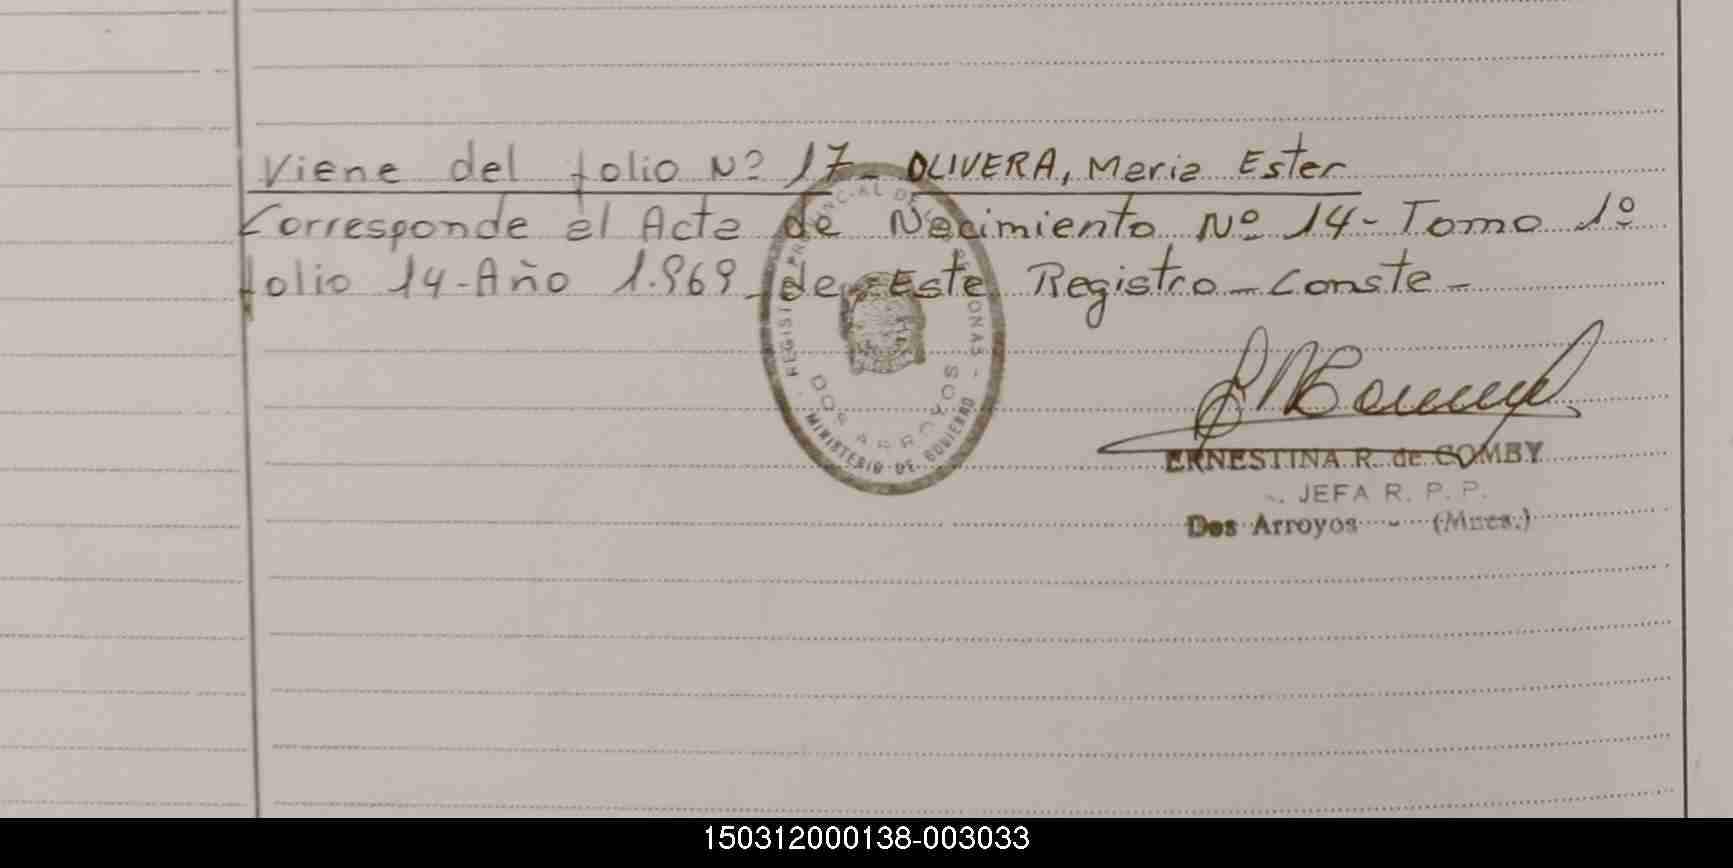 Viene del folio Nº 17 - OLIVERA, Maria Ester
Corresponde al Acta de Nacimiento Nº 14 - Tomo 1º
folio 14 - Año 1.969 - de Este Registro - Conste -
REGISTRO PROVINCIAL DE LAS PERSONAS -
DOS ARROYOS
MINISTERIO DE GOBIERNO
ERNESTINA R. de COMBY
JEFA R. P. P.
Dos Arroyos - (Mnes.)
150312000138-003033